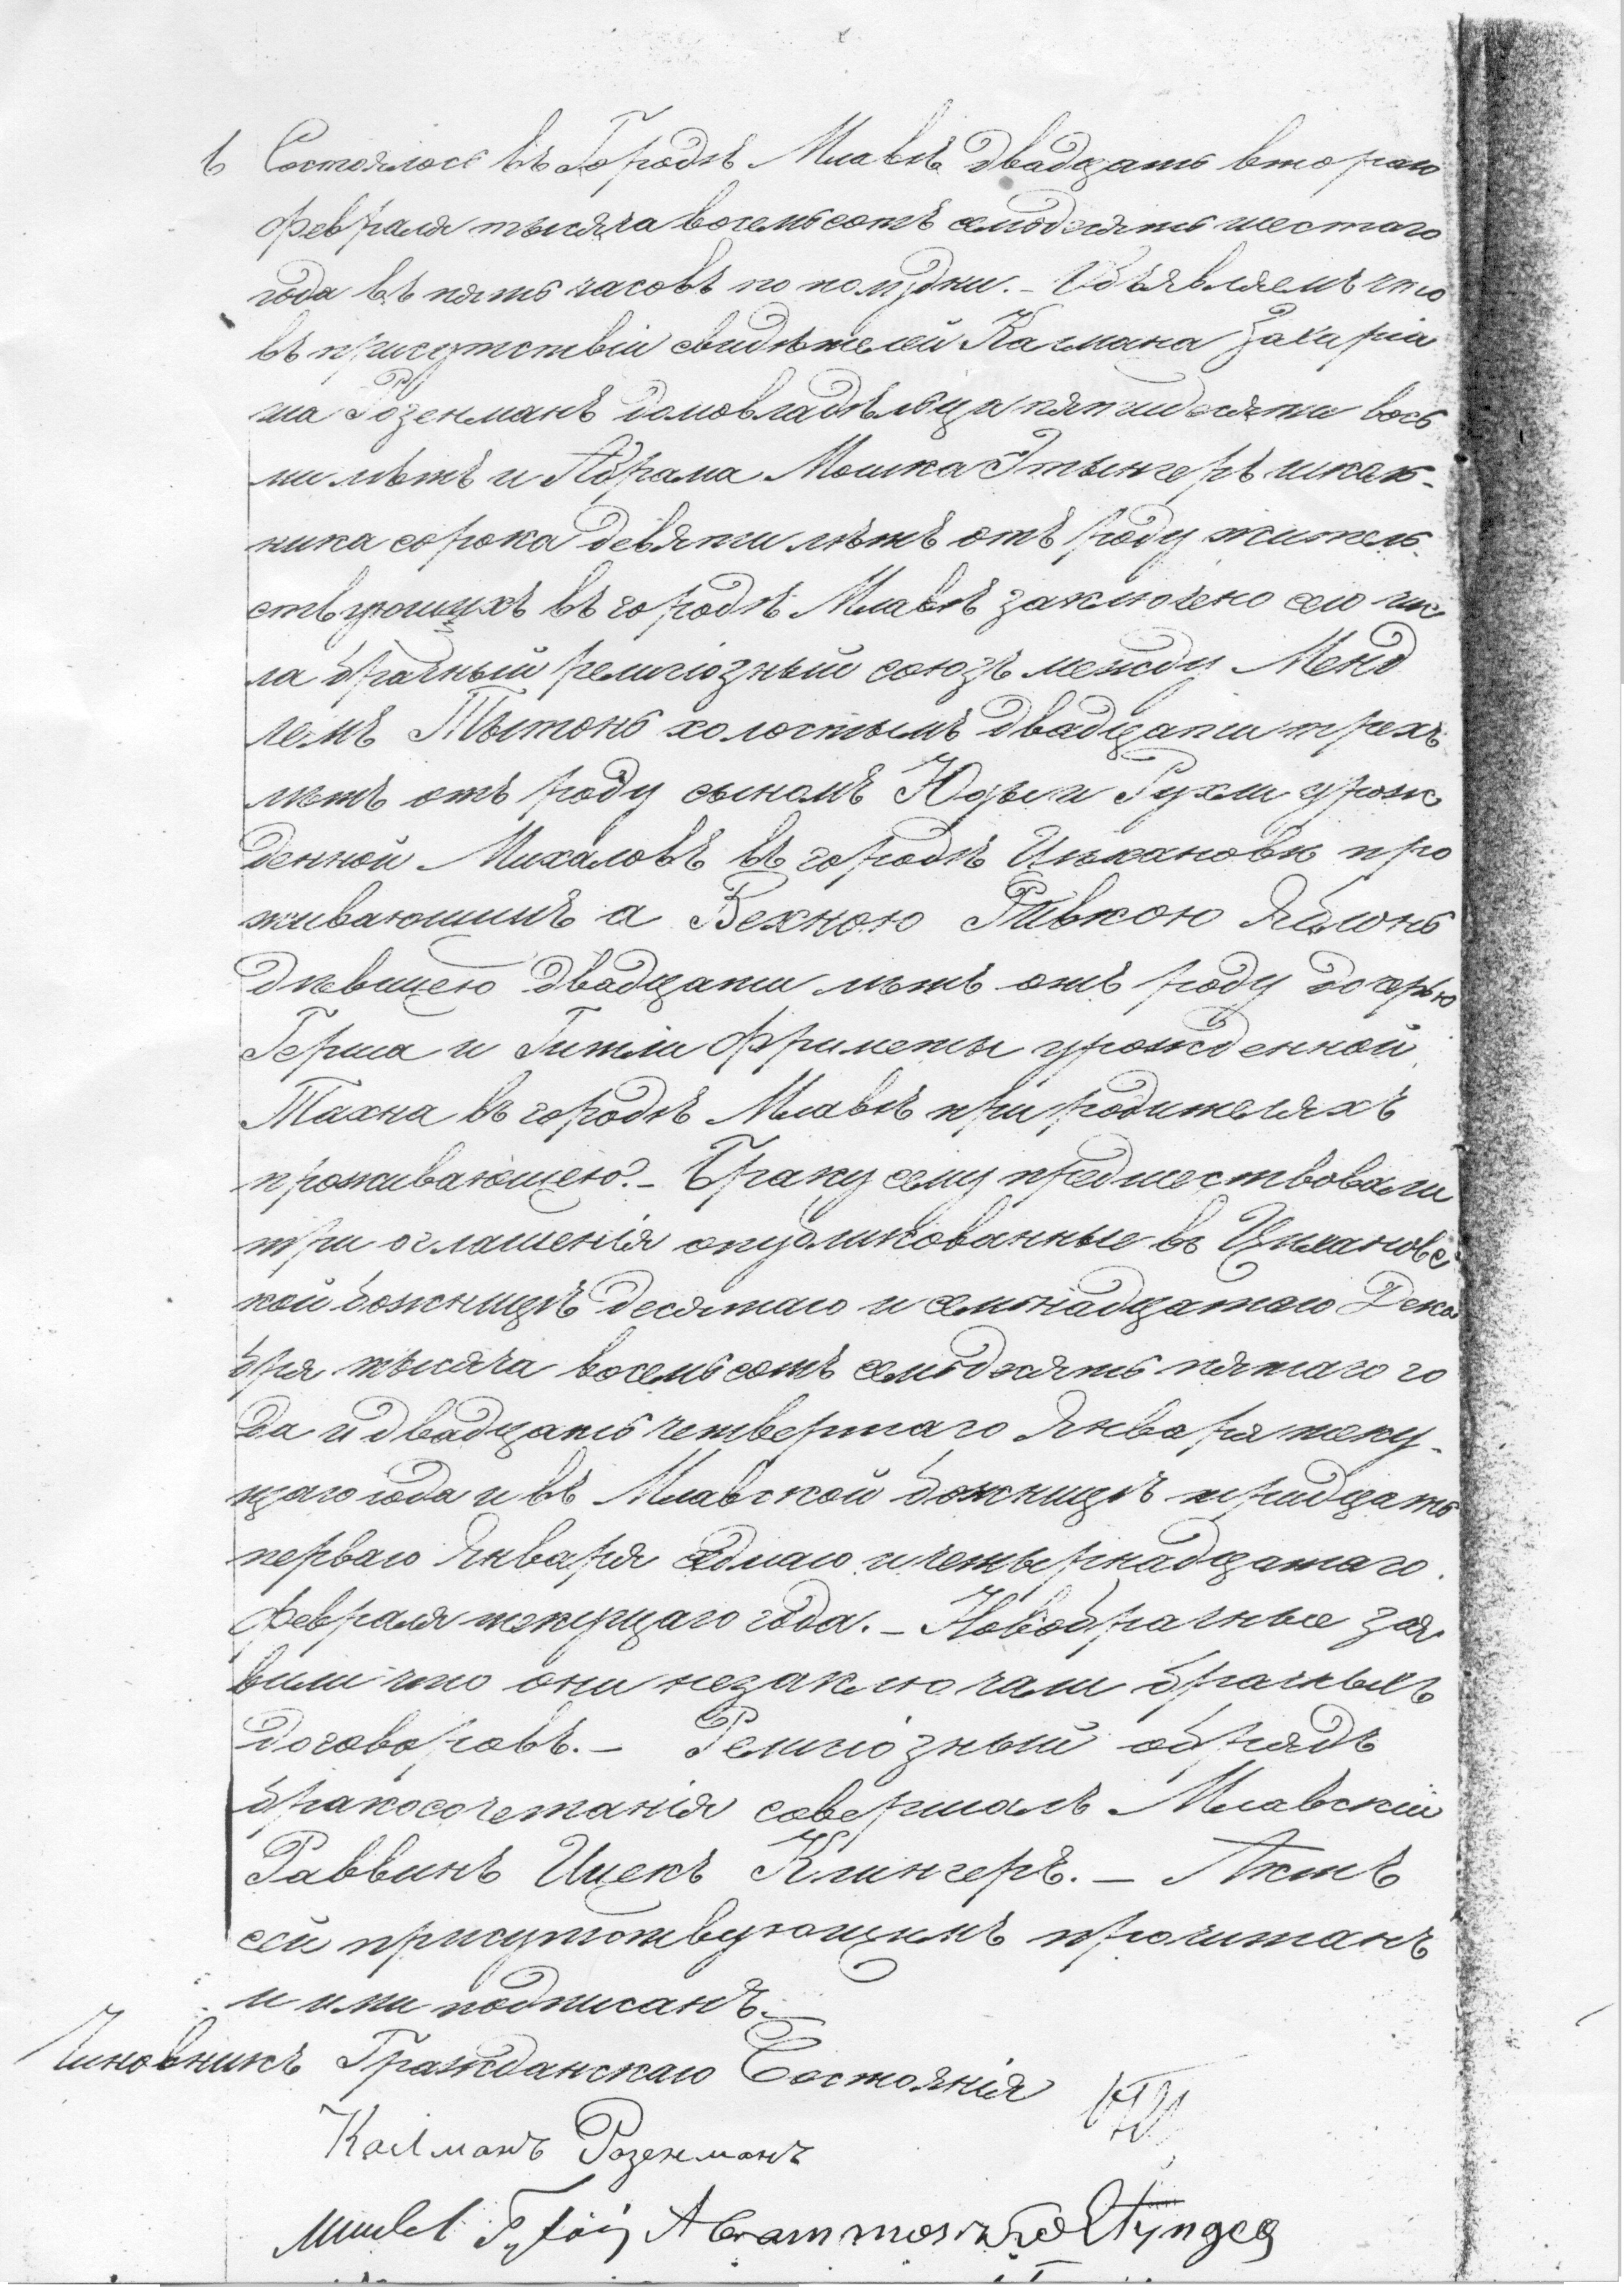 Состоялось въ Городѣ Млавѣ двадцать втораго
февраля тысяча восемьсотъ семьдесять шестаго
года въ пять часовъ по полудни. - Объявляемъ что
въ присутствіи свидѣтелей Калмана Захарія
ша Розенманъ домовладѣльца пятидесяти вось
ми лѣтъ и Абрама Мошка Этынгеръ шкаль-
ника сорока девяти лѣтъ отъ роду житель-
ствующихъ въ городѣ Млавѣ заключено сего чис
ла брачный религіозный союзъ между Менд
лемъ Тытонь холостымъ двадцати трехъ
лѣтъ отъ роду сыномъ Юды и Рухли урож
денной Михаловъ въ городѣ Цѣхановѣ про
живающимъ а Вехною Ривкою Яблонь
дѣвицею двадцати лѣтъ отъ роду дочерью
Герша и Гитли Фриметы урожденной
Тахна въ городѣ Млавѣ при родителяхъ
проживающею. - Браку сему предшествовали
три оглашенія опубликованные въ Цѣхановс
кой божницѣ десятаго и семнадцатаго Дека
бря тысяча восемьсотъ семьдесять пятаго го
да и двадцать четвертаго Января теку-
щаго года и въ Млавской божницѣ тридцать
перваго Января седмаго и четырнадцатаго
февраля текущаго года. - Новобрачные зая
вили что они незаключали брачныхъ
договоровъ. - Религіозный обрядъ
бракосочетанія совершалъ Млавскій
Раввинъ Ицекъ Клингеръ. - Актъ
сей присутствующимъ прочитанъ
и ими подписанъ. -
Чиновникъ Гражданскаго Состоянія
Калманъ Розенманъ
Abram Etynger